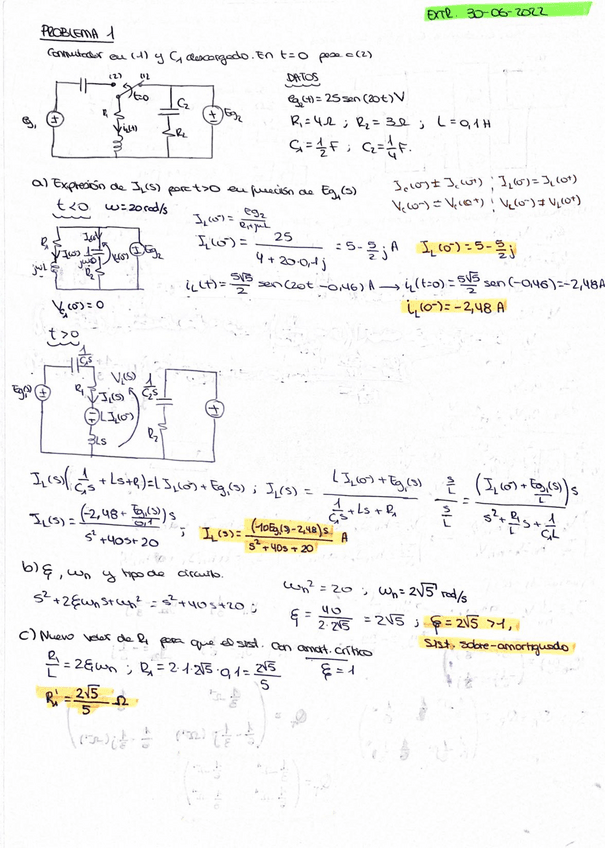 EXTR. 30-06-2022
PROBLEMA 1
Conmutador en (1) y C₁ descargado. En t=0 pasa a (2)
(2) (1)
t=0
eg₁
R₁
iL(t)
C₂
R₂
Eg₂
DATOS
eg₂(t) = 25 sen(20t) V
R₁ = 4Ω ; R₂ = 3Ω ; L = 0,1 H
C₁ = 1/2 F ; C₂ = 1/4 F.
a) Expresión de IL(s) para t>0 en función de Eg₁(s)
Ic(0⁻) ≠ Ic(0⁺) ; IL(0⁻) = IL(0⁺)
Vc(0⁻) = Vc(0⁺) ; VL(0⁻) ≠ VL(0⁺)
t<0 ω=20rad/s
IL(0⁻) = eg₂/(R₁+jωL)
IL(0⁻) = 25/(4+20·0,1j) = 5 - 5/2 j A
IL(0⁻) = 5 - 5/2 j
iL(t) = 5√5/2 sen(20t - 0,46) A → iL(t=0) = 5√5/2 sen(-0,46) = -2,48A
iL(0⁻) = -2,48 A
R₁
jωL
R₂
Eg₂
t>0
1/C₁s
Eg₁(s)
R₁
IL(s)
LIL(0⁻)
Ls
VL(s)
1/C₂s
R₂
IL(s)(1/C₁s + Ls + R₁) = LIL(0⁻) + Eg₁(s) ; IL(s) = (LIL(0⁻) + Eg₁(s))/(1/C₁s + Ls + R₁) · (s/L)/(s/L) = (IL(0⁻) + Eg₁(s)/L)s/(s² + R₁/L s + 1/C₁L)
IL(s) = (-2,48 + Eg₁(s)/0,1)s/(s² + 40s + 20) ; IL(s) = (10Eg₁(s) - 2,48)s/(s² + 40s + 20) A
b) ξ, ωn y tipo de circuito.
ωn² = 20 ; ωn = 2√5 rad/s
s² + 2ξωns + ωn² = s² + 40s + 20 ;
ξ = 40/(2·2√5) = 2√5 ; ξ = 2√5 > 1,
Sist. sobre-amortiguado
c) Nuevo valor de R₁ para que el sist. con amort. crítico
ξ = 1
R₁/L = 2ξωn ; R₁ = 2·1·2√5·0,1 = 2√5/5
R₁' = 2√5/5 Ω